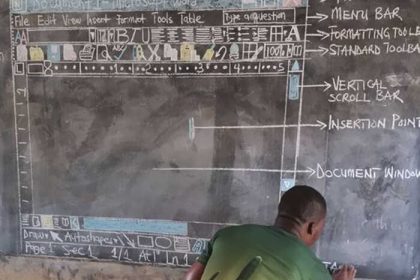 File Edit View Insert Format Tools Table Type a question
MENU BAR
FORMATTING TOOLB
STANDARD TOOLBA
B I U
A
100%
1 2 3 4 5
VERTICAL
SCROLL BAR
INSERTION POINT
DOCUMENT WINDOW
Draw Autoshapes
Page 1 Sec 1 1/1 At 1" Ln 1
TA